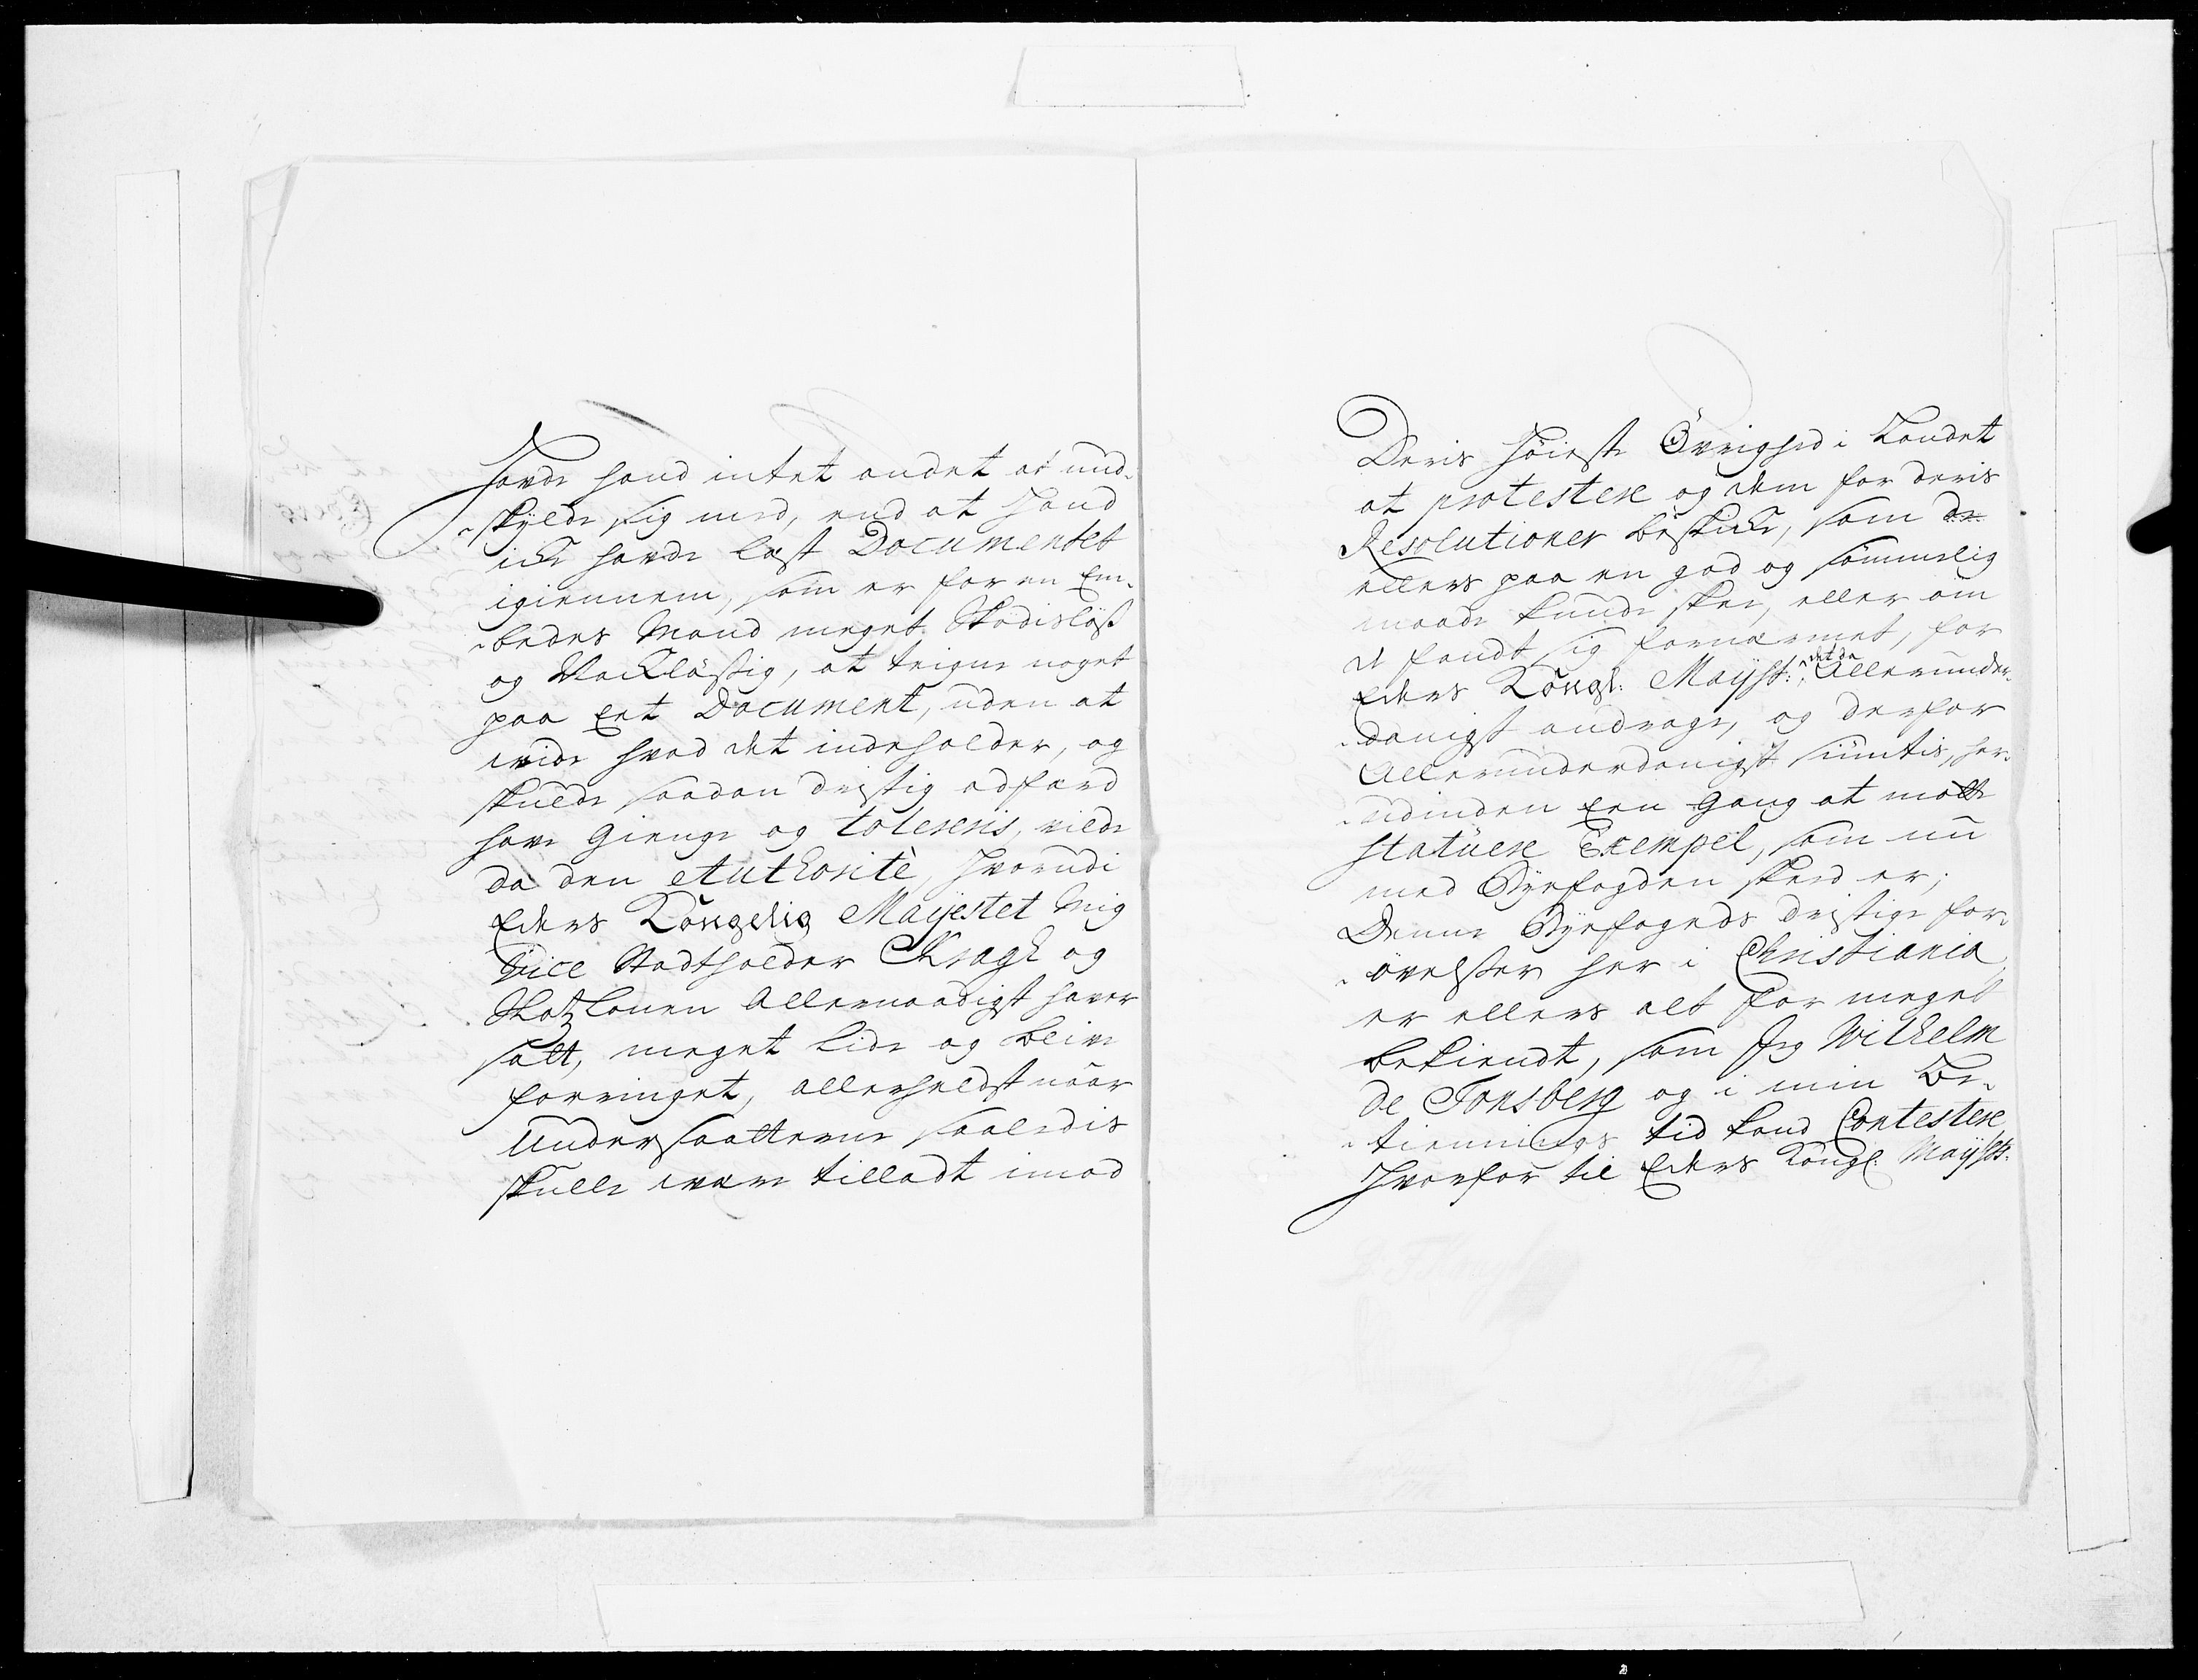 Havde hand intet andet at und-
skylde sig med, end at Hand
icke havde læst Documentet
igiennem, som er for en Em-
bedes Mand meget Skiødisløst
og Wackløstig, at teigne noget
paa Eet Document, uden at
wide hvad det indeholder, og
skulde saadan dristig adfærd
have Gienge og tolereris, vilde
da den Authoritè, hvorudi
Eders Kongelig Mayestet Mig
Vice Stadtholder Kragh og
Slotzlouen Allernaadigst haver
satt, meget lide og blive
forringet, allerheldst naar
Undersaatterne saaledis
skulle være tilladt imod
Deris Høieste Øvrighed i Landet
at protestere og dem for deris
Resolutioner beskicke, som de
ellers paa en god og sømmelig
maade kunde skee, eller om
de fandt sig fornærmet, for
Eders Kongl: Mayst:, det da Allerunder-
danigst andrage, og derfor
Allerunderdanigst siuntis, her-
udinden Een Gang at matte
statuere Exempel, som nu
med Byefogden skeed er;
Denne Byefogeds dristige for-
øvelsser her i Christiania
er ellers alt for meget
bekiendt, som Jeg Wilhelm
de Tonsberg og i min Be-
tiennings tid kand Contestere
Hvorfor til Eders Kongl: Mayst: